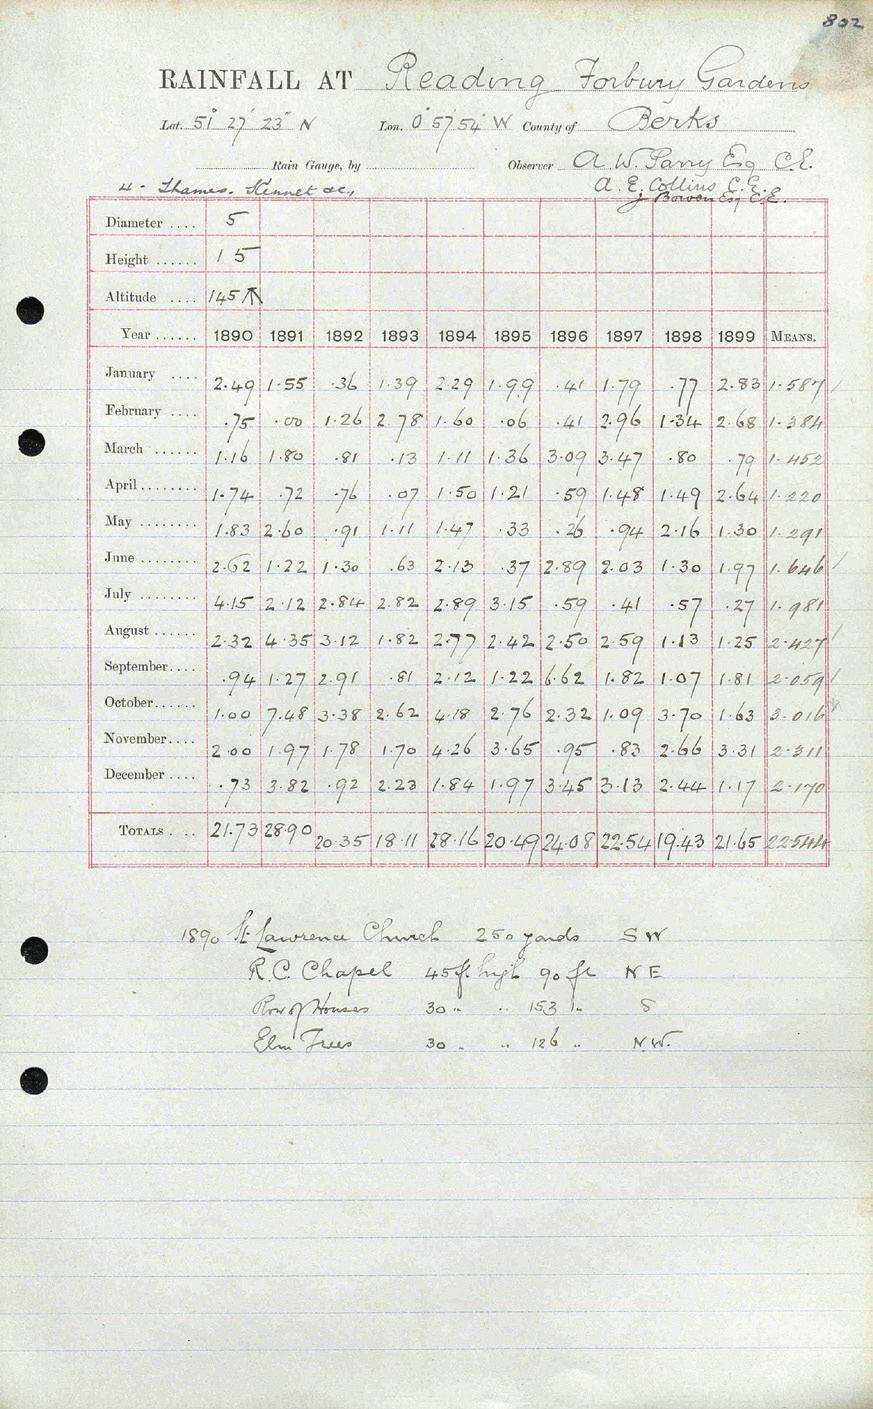 802
RAINFALL AT Reading Forbury Gardens
Lat. 51° 27' 23" N Lon. 0° 57' 54" W County of Berks
Rain Gauge, by Observer A. W. Parry Esq C.E.
4. Thames. Kennet &c., A. E. Collins C.E.
J Bowen Esq C.E.
Diameter .... 5
Height ...... 1 5
Altitude .... 145
Year ...... 1890 1891 1892 1893 1894 1895 1896 1897 1898 1899 MEANS.
January .... 2.49 1.55 .36 1.39 2.29 1.99 .41 1.79 .77 2.83 1.587
February .... .75 .00 1.26 2.78 1.60 .06 .41 2.96 1.34 2.68 1.384
March ...... 1.16 1.80 .81 .13 1.11 1.36 3.09 3.47 .80 .79 1.452
April ........ 1.74 .72 .76 .07 1.50 1.21 .59 1.48 1.49 2.64 1.220
May ........ 1.83 2.60 .91 1.11 1.47 .33 .26 .94 2.16 1.30 1.291
June ........ 2.62 1.22 1.30 .63 2.13 .37 2.89 2.03 1.30 1.97 1.646
July ........ 4.15 2.12 2.84 2.82 2.89 3.15 .59 .41 .57 .27 1.981
August ...... 2.32 4.35 3.12 1.82 2.77 2.42 2.50 2.59 1.13 1.25 2.427
September.... .94 1.27 2.91 .81 2.12 1.22 6.62 1.82 1.07 1.81 2.059
October...... 1.00 7.48 3.38 2.62 4.18 2.76 2.32 1.09 3.70 1.63 3.016
November.... 2.00 1.97 1.78 1.70 4.26 3.65 .95 .83 2.66 3.31 2.311
December .... .73 3.82 .92 2.23 1.84 1.97 3.45 3.13 2.44 1.17 2.170
TOTALS .... 21.73 28.90 20.35 18.11 28.16 20.49 24.08 22.54 19.43 21.65 22.544
1890 St Lawrence Church 250 yards S W
R.C. Chapel 45 ft high 90 ft N E
Row of Houses 30 " " 153 " S
Elm Trees 30 " " 126 " N.W.